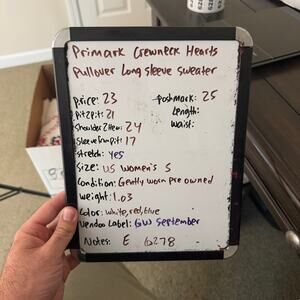 Primark Crewneck Hearts
Pullover Long sleeve sweater
Price: 23 Poshmark: 25
Pit2Pit: 21 Length:
Shoulder2Hem: 24 Waist:
SleeveFrmpit: 17
Stretch: yes
Size: US Women's S
Condition: Gently worn pre owned
Weight: 1.03
Color: white, red, blue
Vendoo Label: GW September
Notes: E 6278